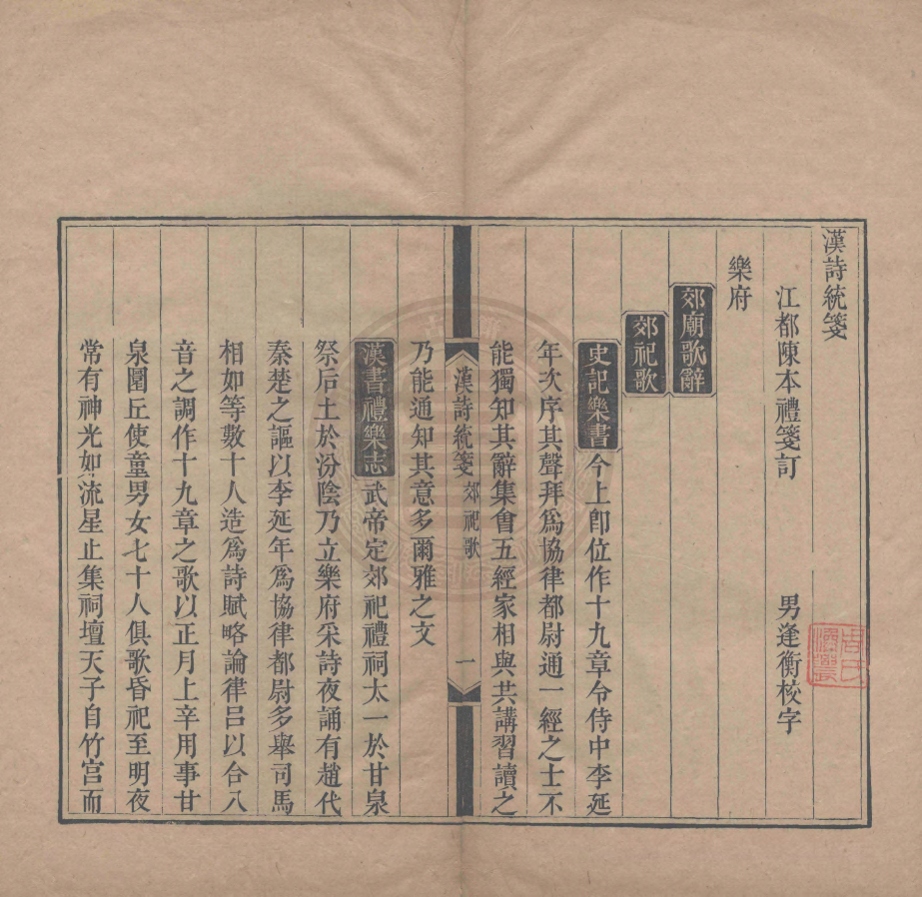 漢詩統箋
江都陳本禮箋訂 男逢衡校字
樂府
郊廟歌辭
郊祀歌
史記樂書今上卽位作十九章令侍中李延
年次序其聲拜爲協律都尉通一經之士不
能獨知其辭集會五經家相與共講習讀之
乃能通知其意多爾雅之文
漢詩統箋 郊祀歌 一
漢書禮樂志武帝定郊祀禮祠太一於甘泉
祭后土於汾陰乃立樂府采詩夜誦有趙代
秦楚之謳以李延年爲協律都尉多舉司馬
相如等數十人造爲詩賦略論律呂以合八
音之調作十九章之歌以正月上辛用事甘
泉圜丘使童男女七十人俱歌昏祀至明夜
常有神光如流星止集祠壇天子自竹宮而